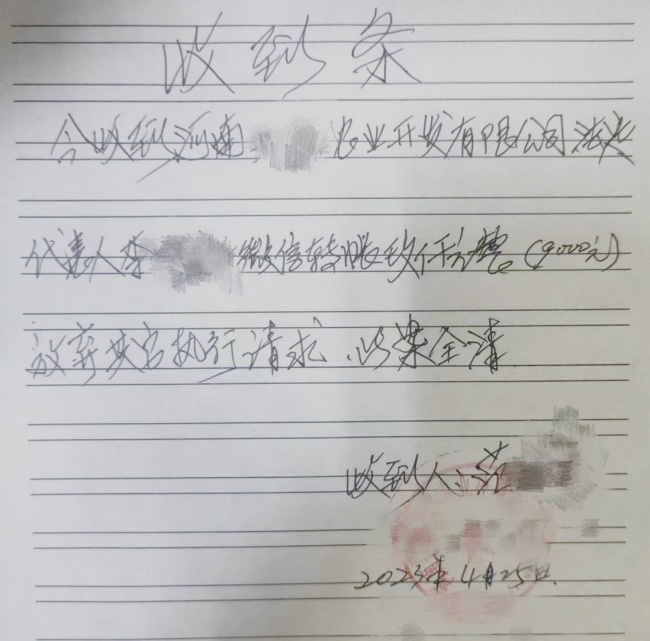 收到条
今收到河南 农业开发有限公司法定
代表人李 微信转账 (9000元)
放弃其它执行请求.此案全清
收到人:范
2023年4月25日.